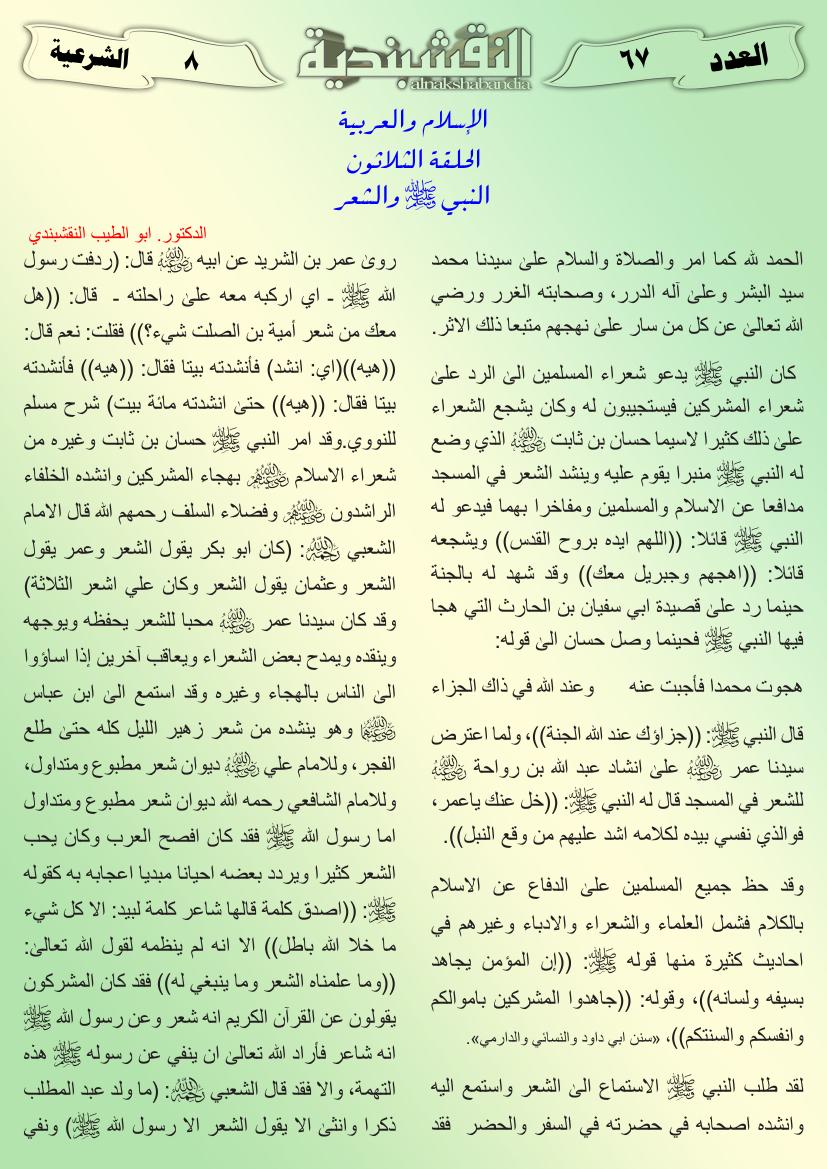 العدد
٦٧
النقشبندية
alnakshabandia
٨
الشرعية
الإسلام والعربية
الحلقة الثلاثون
النبي ﷺ والشعر
الدكتور. ابو الطيب النقشبندي
الحمد لله كما امر والصلاة والسلام علىٰ سيدنا محمد
سيد البشر وعلىٰ آله الدرر، وصحابته الغرر ورضي
الله تعالىٰ عن كل من سار علىٰ نهجهم متبعا ذلك الاثر.
كان النبي ﷺ يدعو شعراء المسلمين الىٰ الرد علىٰ
شعراء المشركين فيستجيبون له وكان يشجع الشعراء
علىٰ ذلك كثيرا لاسيما حسان بن ثابت رضي الله عنه الذي وضع
له النبي ﷺ منبرا يقوم عليه وينشد الشعر في المسجد
مدافعا عن الاسلام والمسلمين ومفاخرا بهما فيدعو له
النبي ﷺ قائلا: ((اللهم ايده بروح القدس)) ويشجعه
قائلا: ((اهجهم وجبريل معك)) وقد شهد له بالجنة
حينما رد علىٰ قصيدة ابي سفيان بن الحارث التي هجا
فيها النبي ﷺ فحينما وصل حسان الىٰ قوله:
هجوت محمدا فأجبت عنه وعند الله في ذاك الجزاء
قال النبي ﷺ: ((جزاؤك عند الله الجنة))، ولما اعترض
سيدنا عمر رضي الله عنه علىٰ انشاد عبد الله بن رواحة رضي الله عنه
للشعر في المسجد قال له النبي ﷺ: ((خل عنك ياعمر،
فوالذي نفسي بيده لكلامه اشد عليهم من وقع النبل)).
وقد حظ جميع المسلمين علىٰ الدفاع عن الاسلام
بالكلام فشمل العلماء والشعراء والادباء وغيرهم في
احاديث كثيرة منها قوله ﷺ: ((إن المؤمن يجاهد
بسيفه ولسانه))، وقوله: ((جاهدوا المشركين باموالكم
وانفسكم والسنتكم))، «سنن ابي داود والنسائي والدارمي».
لقد طلب النبي ﷺ الاستماع الىٰ الشعر واستمع اليه
وانشده اصحابه في حضرته في السفر والحضر فقد
روىٰ عمر بن الشريد عن ابيه رضي الله عنه قال: (ردفت رسول
الله ﷺ ـ اي اركبه معه علىٰ راحلته ـ قال: ((هل
معك من شعر أمية بن الصلت شيء؟)) فقلت: نعم قال:
((هيه))(اي: انشد) فأنشدته بيتا فقال: ((هيه)) فأنشدته
بيتا فقال: ((هيه)) حتىٰ انشدته مائة بيت) شرح مسلم
للنووي.وقد امر النبي ﷺ حسان بن ثابت وغيره من
شعراء الاسلام رضي الله عنهم بهجاء المشركين وانشده الخلفاء
الراشدون رضي الله عنهم وفضلاء السلف رحمهم الله قال الامام
الشعبي رحمه الله: (كان ابو بكر يقول الشعر وعمر يقول
الشعر وعثمان يقول الشعر وكان علي اشعر الثلاثة)
وقد كان سيدنا عمر رضي الله عنه محبا للشعر يحفظه ويوجهه
وينقده ويمدح بعض الشعراء ويعاقب آخرين إذا اساؤوا
الىٰ الناس بالهجاء وغيره وقد استمع الىٰ ابن عباس
رضي الله عنهما وهو ينشده من شعر زهير الليل كله حتىٰ طلع
الفجر، وللامام علي رضي الله عنه ديوان شعر مطبوع ومتداول،
وللامام الشافعي رحمه الله ديوان شعر مطبوع ومتداول
اما رسول الله ﷺ فقد كان افصح العرب وكان يحب
الشعر كثيرا ويردد بعضه احيانا مبديا اعجابه به كقوله
ﷺ: ((اصدق كلمة قالها شاعر كلمة لبيد: الا كل شيء
ما خلا الله باطل)) الا انه لم ينظمه لقول الله تعالىٰ:
((وما علمناه الشعر وما ينبغي له)) فقد كان المشركون
يقولون عن القرآن الكريم انه شعر وعن رسول الله ﷺ
انه شاعر فأراد الله تعالىٰ ان ينفي عن رسوله ﷺ هذه
التهمة، والا فقد قال الشعبي رحمه الله: (ما ولد عبد المطلب
ذكرا وانثىٰ الا يقول الشعر الا رسول الله ﷺ) ونفي